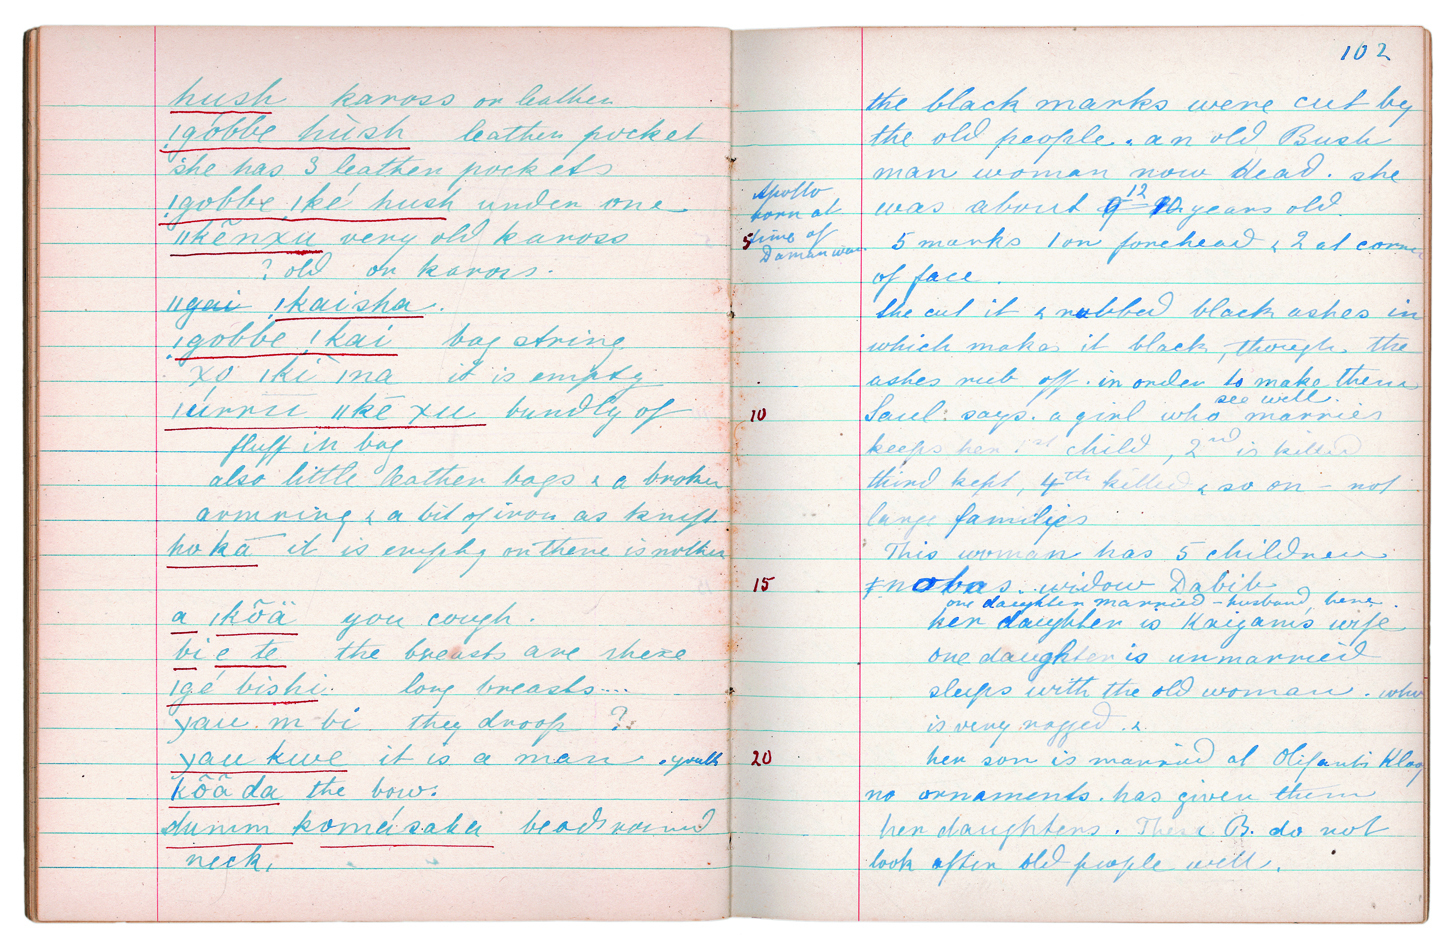 hush kaross or leather
ǃgóbbe hùsh leather pocket
she has 3 leather pockets
ǃgobbe ǃké hush under one
ǁkēnxu very old kaross
? old or kaross.
ǁgai ǃkaisha.
ǃgóbbe ǃkai bag string
xo ǀki ǀna it is empty
ǀurru ǁkē xu bundly of
fluff in bag
also little leather bags & a broken
armring & a bit of iron as knife
ho kā it is empty or there is nothing
a ǀkõä you cough.
bi e te the breasts are there
ǀgé bishi. long breasts....
yau m bi they droop ?
yau kwe it is a man . youth
kõã da the bow.
dumm komásaka beads round
neck,
102
the black marks were cut by
the old people . an old Bush
man woman now dead. she
Apollo
born at
time of
Damara war
was about 9 12 10 years old
5
5 marks 1 on forehead & 2 at corner
of face.
She cut it & rubbed black ashes in
which makes it black, though the
ashes rub off. in order to make them
see well.
10
Saul: says. a girl who marries
keeps her 1st child, 2nd is killed
third kept, 4th killed & so on – not
large families
This woman has 5 children
15
ǂnobas. widow Dabib
one daughter married – husband, here.
her daughter is Kaigams wife
one daughter is unmarried
sleeps with the old woman . who
is very ragged. &
20
her son is married at Olifants Kloof
no ornaments. has given them
her daughters. These B. do not
look after old people well.